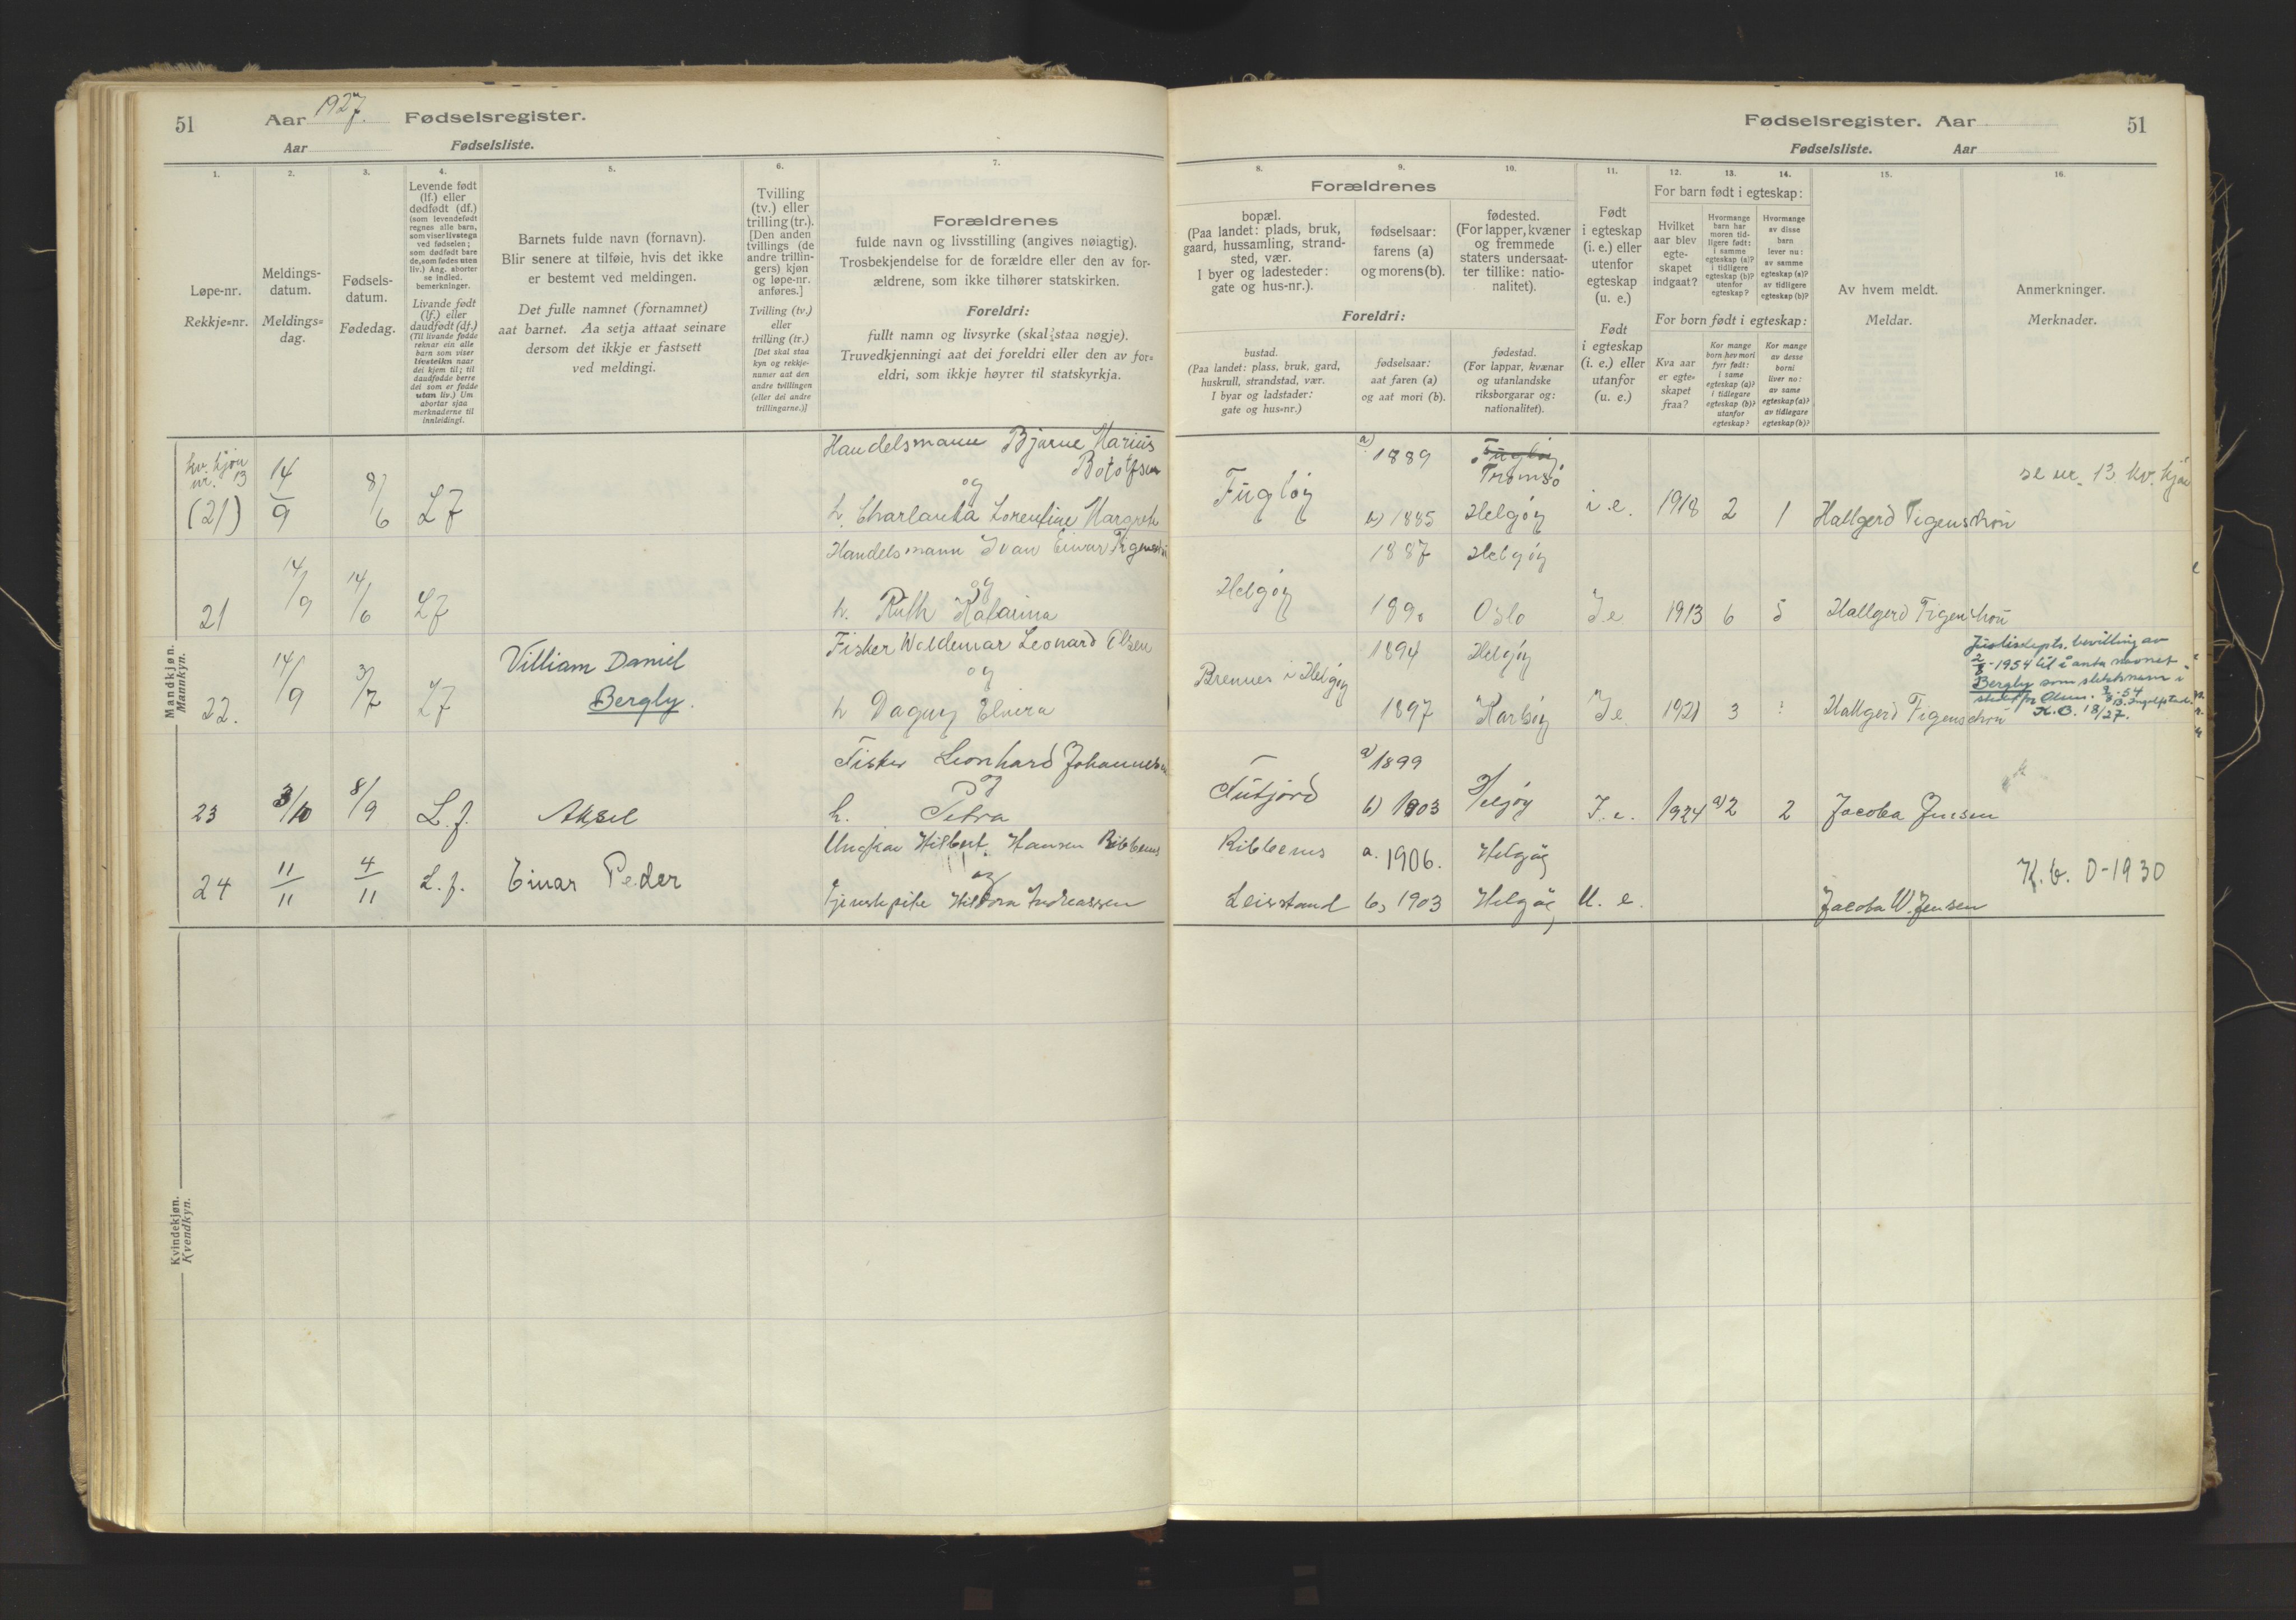 51 Aar 1927. Fødselsregister.
Aar Fødselsliste.
Fødselsregister. Aar 51
Fødselsliste. Aar
1. 2. 3. 4. 5. 6. 7.
Løpe-nr.
Rekkje=nr.
Meldings-
datum.
Meldings=
dag.
Fødsels-
datum.
Fødedag.
Levende født
(lf.) eller
dødfødt (df.)
(som levendefødt
regnes alle barn,
som viser livstegn
ved fødselen;
som dødfødt bare
de, som fødes uten
liv.) Ang. aborter
se indled.
bemerkninger.
Livande født
(lf.) eller
daudfødt (df.)
(Til livande fødde
reknar ein alle
barn som viser
livsteikn naar
dei kjem til; til
daudfødde berre
dei som er fødde
utan liv.) Um
abortar sjaa
merknaderne til
innleidingi.
Barnets fulde navn (fornavn).
Blir senere at tilføie, hvis det ikke
er bestemt ved meldingen.
Det fulle namnet (fornamnet)
aat barnet. Aa setja attaat seinare
dersom det ikkje er fastsett
ved meldingi.
Tvilling
(tv.) eller
trilling (tr.).
[Den anden
tvillings (de
andre trillin-
gers) kjøn
og løpe-nr.
anføres.]
Tvilling (tv.)
eller
trilling (tr.)
[Det skal staa
kyn og rekkje-
numer aat den
andre tvillingen
(eller dei andre
trillingarne.)]
Forældrenes
fulde navn og livsstilling (angives nøiagtig).
Trosbekjendelse for de forældre eller den av for-
ældrene, som ikke tilhører statskirken.
Foreldri:
fullt namn og livsyrke (skal staa nøgje).
Truvedkjenningi aat dei foreldri eller den av for=
eldri, som ikkje høyrer til statskyrkja.
8. 9. 10. 11. 12. 13. 14. 15. 16.
Forældrenes
bopæl.
(Paa landet: plads, bruk,
gaard, hussamling, strand-
sted, vær.
I byer og ladesteder:
gate og hus-nr.).
fødselsaar:
farens (a)
og morens (b).
fødested.
(For lapper, kvæner
og fremmede
staters undersaat-
ter tillike: natio-
nalitet).
Foreldri:
bustad.
(Paa landet: plass, bruk, gard,
huskrull, strandstad, vær.
I byar og ladstader:
gate og hus=nr.)
fødselsaar:
aat faren (a)
og aat mori (b).
fødestad.
(For lappar, kvænar
og utanlandske
riksborgarar og:
nationalitet).
Født
i egteskap
(i. e.) eller
utenfor
egteskap
(u. e.)
Født
i egteskap
(i. e.) eller
utanfor
(u. e.)
For barn født i egteskap:
Hvilket
aar blev
egte-
skapet
indgaat?
Hvormange
barn har
moren tid-
ligere født:
i samme
egteskap (a)?
i tidligere
egteskap (b)?
utenfor
egteskap?
Hvormange
av disse
barn
lever nu:
av samme
egteskap (a)?
av tidligere
egteskap (b)?
For born født i egteskap:
Kva aar
er egte-
skapet
fraa?
Kor mange
born hev mori
fyrr født:
i same
egteskap (a)?
i tidlegare
egteskap (b)?
utanfor
egteskap?
Kor mange
av desse
borni
liver no:
av same
egteskap (a)?
av tidlegare
egteskap (b)?
Av hvem meldt.
Meldar.
Anmerkninger.
Merknader.
Mandkjøn.
Mannkyn.
kv. kjøn
nr. 13
(21) 14/9 8/6 LF
Handelsmann Bjarne Marius
Botolfsen
og
h. Charlanta Lorentine Margreth
Fugløy a) 1889 Fugløy
Tromsø
b) 1885 Helgøy i.e. 1918 2 1 Hallgerd Figenschou se nr. 13 kv. kjøn
21 14/9 14/6 LF
Handelsmann Ivan Einar Figenschou
og
h. Ruth Katarina
Helgøy 1887 Helgøy
1890 Oslo I.e 1913 6 5 Hallgerd Figenschou
22. 14/9 3/7 LF
Villiam Daniel
Bergly.
Fisker Waldemar Leonard Olsen
og
h Dagny Elvira
Brennes i Helgøy 1894 Helgøy
1897 Karlsøy I.e 1921 3 Hallgerd Figenschou
Justisdepts. bevilling av
2/8-1954 til å anta navnet
Bergly som slektsnavn i
stedet for Olsen.
K.B. 18/27.
23 3/10 8/9 L.f. Aksel
Fisker Leonhard Johannesen
og
h. Petra
a) 1899
b) 1903 Helgøy I.e. 1924 a) 2 2 Jacoba Jensen
24 11/11 4/11 L.f. Einar Peder
Ungkar Hilbert Hansen Ribbenes
og
Tjenestepike Hildora Andreassen
Ribbenes a. 1906. Helgøy
Leirstand b, 1903 Helgøy U. e. Jacoba W. Jensen K. b. D-1930
Kvindekjøn.
Kvendkyn.